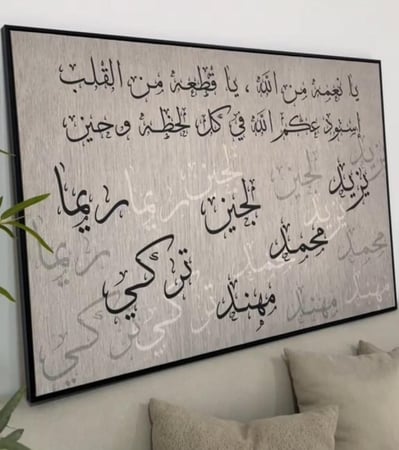 يا نعمه من الله ، يا قطعه من القلب
إستودعكم الله في كل لحظه وحين
يزيد
لجين لجين ريما
يزيد لجين ريما
يزيد
محمد محمد محمد ريما
تركي
مهند مهند مهند
تركي تركي